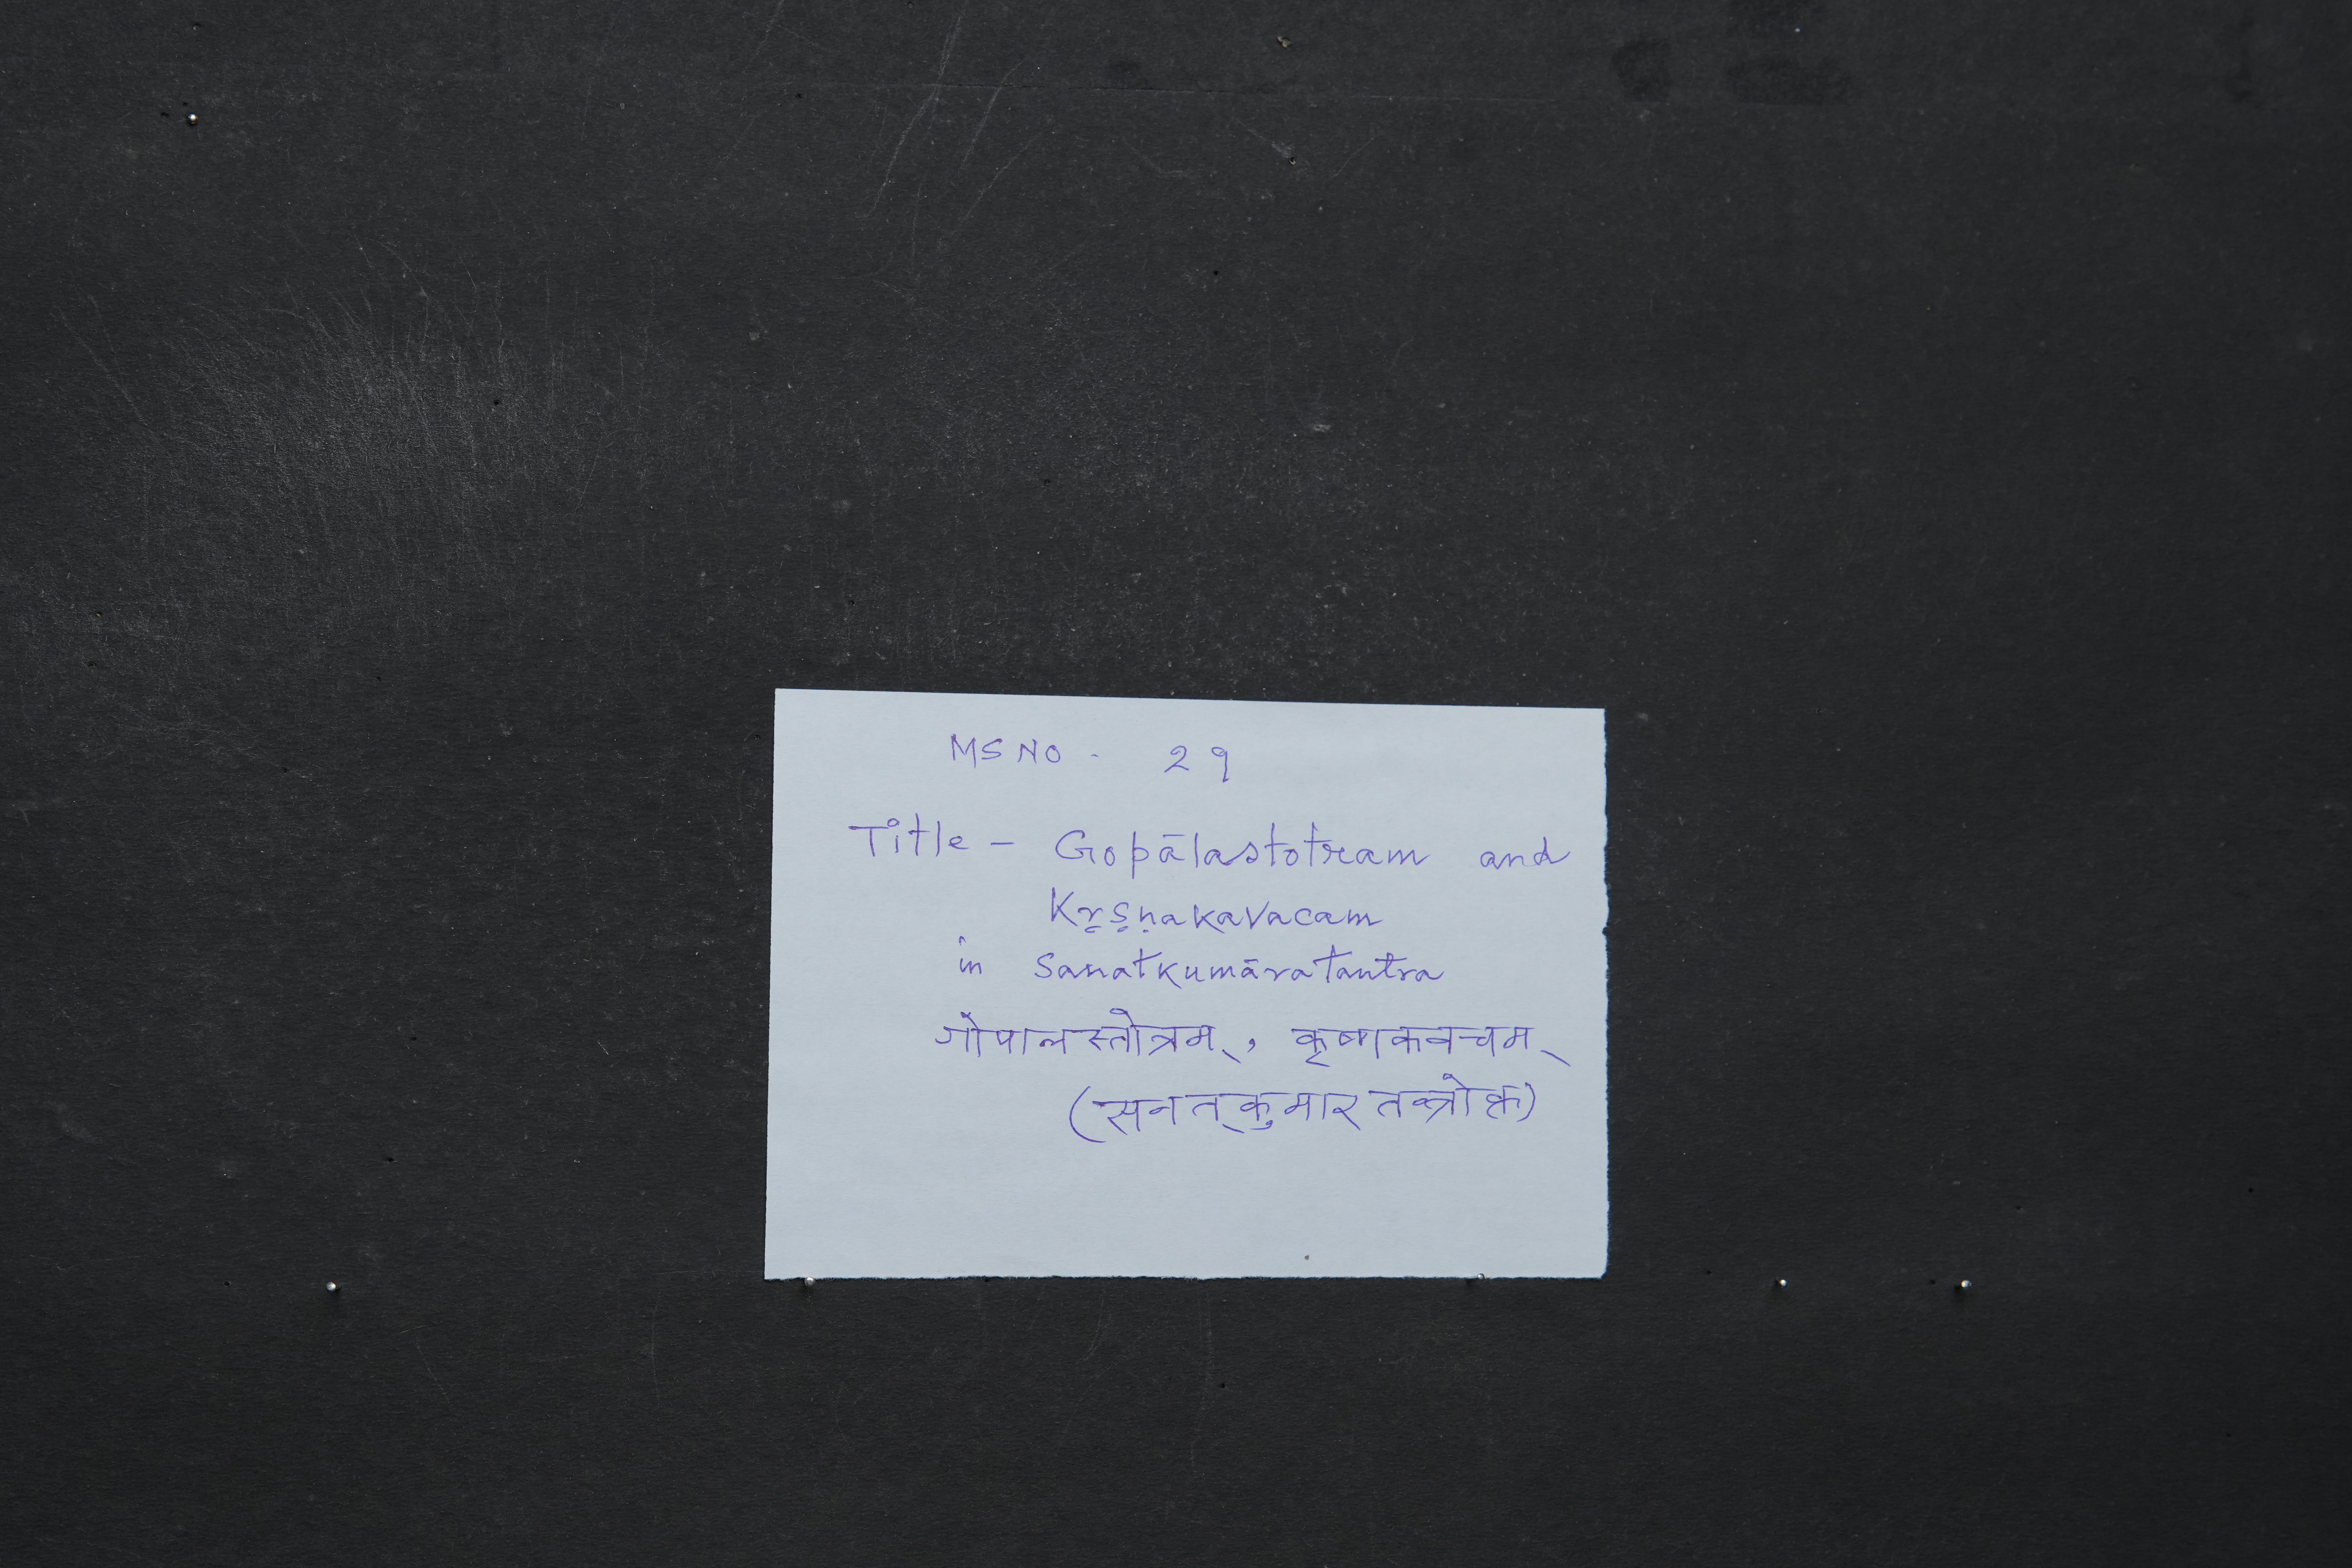 MS NO - 29
Title - Gopālastotram and
Kṛṣṇakavacam
in Sanatkumāratantra
गोपालस्तोत्रम्, कृष्णकवचम्
(सनत्कुमारतन्त्रोक्त)